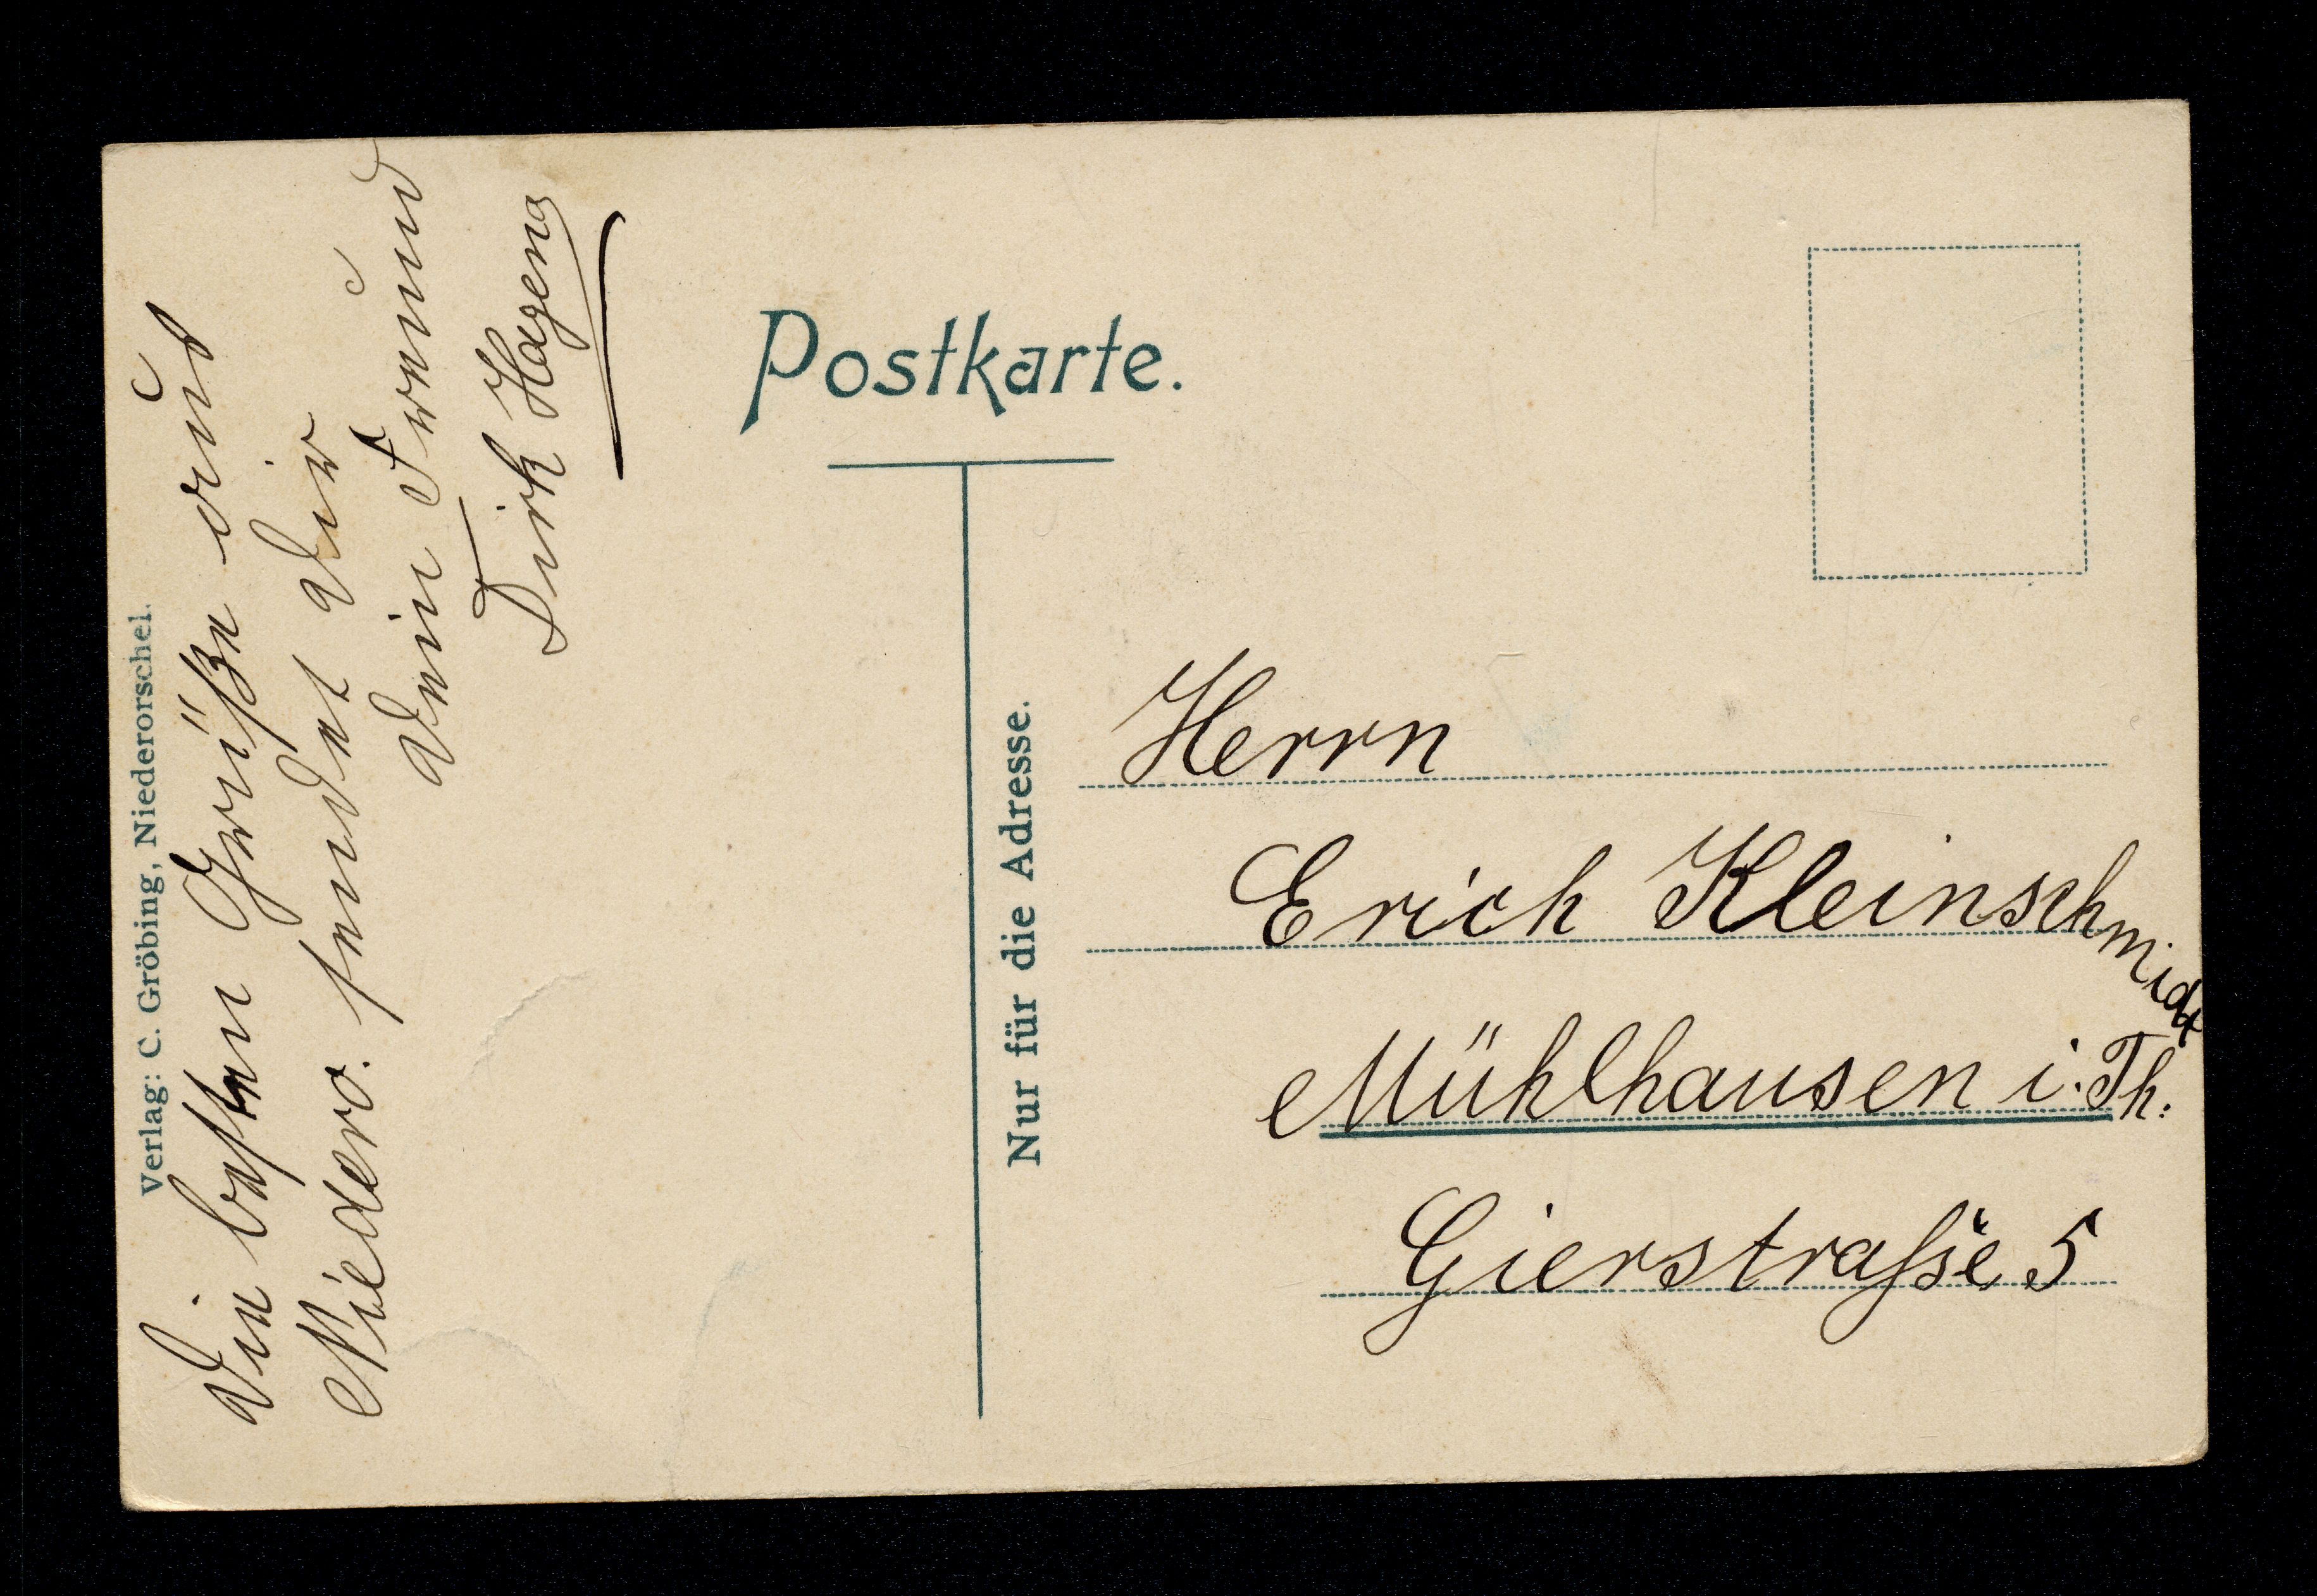 Verlag: C. Gröbing, Niederorschel.
Die besten Grüße aus
Niedero. sendet Dir
Dein Freund
Dirk Hagena
Postkarte.
Nur für die Adresse.
Herrn
Erich Kleinschmidt
Mühlhausen i. Th.
Gierstraße 5